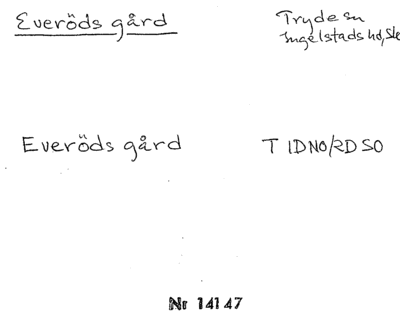 Everöds gård
Tryde sn
Ingelstads hd, Sk
Everöds gård
T IDNO/RD SO
Nr 14147